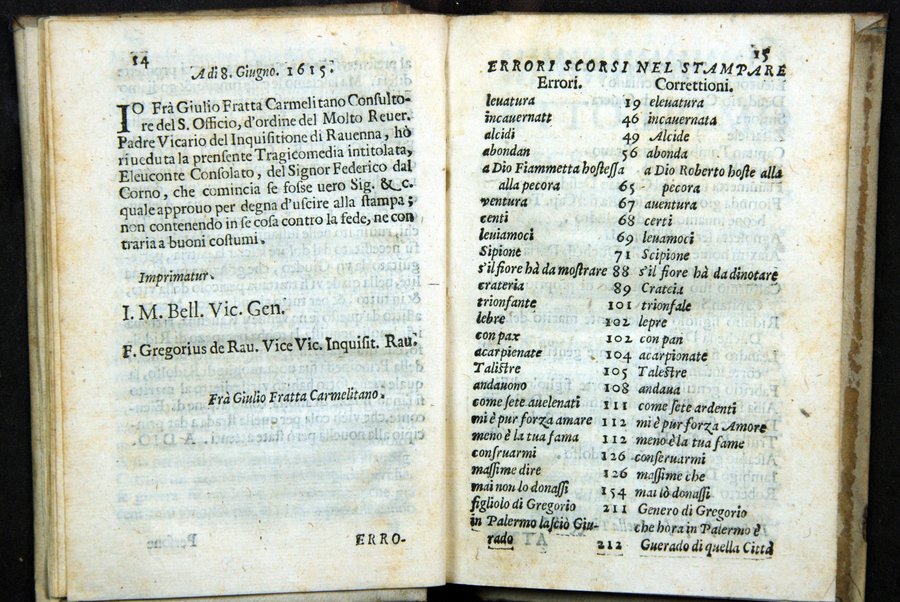 14
A dì 8. Giugno. 1615.
IO Frà Giulio Fratta Carmelitano Consulto-
re del S. Officio, d'ordine del Molto Reuer.
Padre Vicario del Inquisitione di Rauenna, hò
riueduta la prensente Tragicomedia intitolata,
Eleuconte Consolato, del Signor Federico dal
Corno, che comincia se fosse vero Sig. &c.
quale approuo per degna d'uscire alla stampa;
non contenendo in se cosa contro la fede, ne con
traria a buoni costumi.
Imprimatur.
I. M. Bell. Vic. Gen.
F. Gregorius de Rau. Vice Vic. Inquisit. Rau.
Frà Giulio Fratta Carmelitano.
ERRO-
15
ERRORI SCORSI NEL STAMPARE
Errori. Correttioni.
leuatura 19 eleuatura
incauernatt 46 incauernata
alcidi 49 Alcide
abondan 56 abonda
a Dio Fiammetta hostessa a Dio Roberto hoste alla
alla pecora 65 pecora
ventura 67 auentura
centi 68 certi
leuiamoci 69 leuamoci
Sipione 71 Scipione
s'il fiore hà da mostrare 88 s'il fiore hà da dinotare
crateria 89 Crateia
trionfante 101 trionfale
lebre 102 lepre
con pax 102 con pan
acarpienate 104 acarpionate
Talistre 105 Talestre
andauono 108 andaua
come sete auelenati 111 come sete ardenti
mi è pur forza amare 112 mi è pur forza Amore
meno è la tua fama 112 meno è la tua fame
consruarmi 126 conseruarmi
massime dire 126 massime che
mai non lo donassi 154 mai lò donassi
figliolo di Gregorio 211 Genero di Gregorio
in Palermo lasciò Giu- che hora in Palermo è
rado 212 Guerado di quella Città